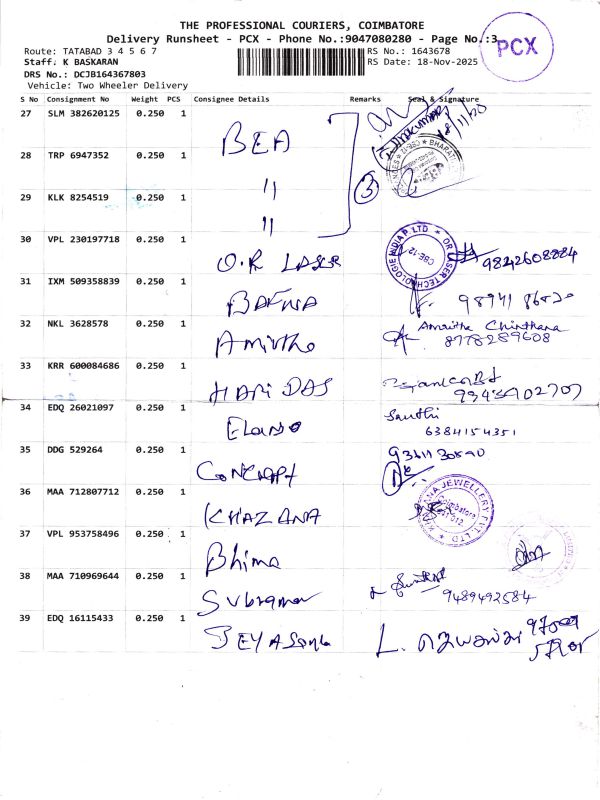 THE PROFESSIONAL COURIERS, COIMBATORE
Delivery Runsheet - PCX - Phone No.:9047080280 - Page No.:3
PCX
Route: TATABAD 3 4 5 6 7
RS No.: 1643678
Staff: K BASKARAN
RS Date: 18-Nov-2025
DRS No.: DCJB164367803
Vehicle: Two Wheeler Delivery
S No Consignment No Weight PCS Consignee Details Remarks Seal & Signature
27 SLM 382620125 0.250 1 BEA
28 TRP 6947352 0.250 1 "
3
29 KLK 8254519 0.250 1 "
30 VPL 230197718 0.250 1 O.R LASER 9842608884
CBE-12
31 IXM 509358839 0.250 1 BAFNA
32 NKL 3628578 0.250 1 Amirtha Amritha Chinthana
8778289608
33 KRR 600084686 0.250 1 HARI DAS
34 EDQ 26021097 0.250 1 Santhi
6384154351
35 DDG 529264 0.250 1 CONCEPT
36 MAA 712807712 0.250 1 KHAZANA
KHAZANA JEWELLERY PVT. LTD
37 VPL 953758496 0.250 1 Bhima
38 MAA 710969644 0.250 1 9489492584
39 EDQ 16115433 0.250 1